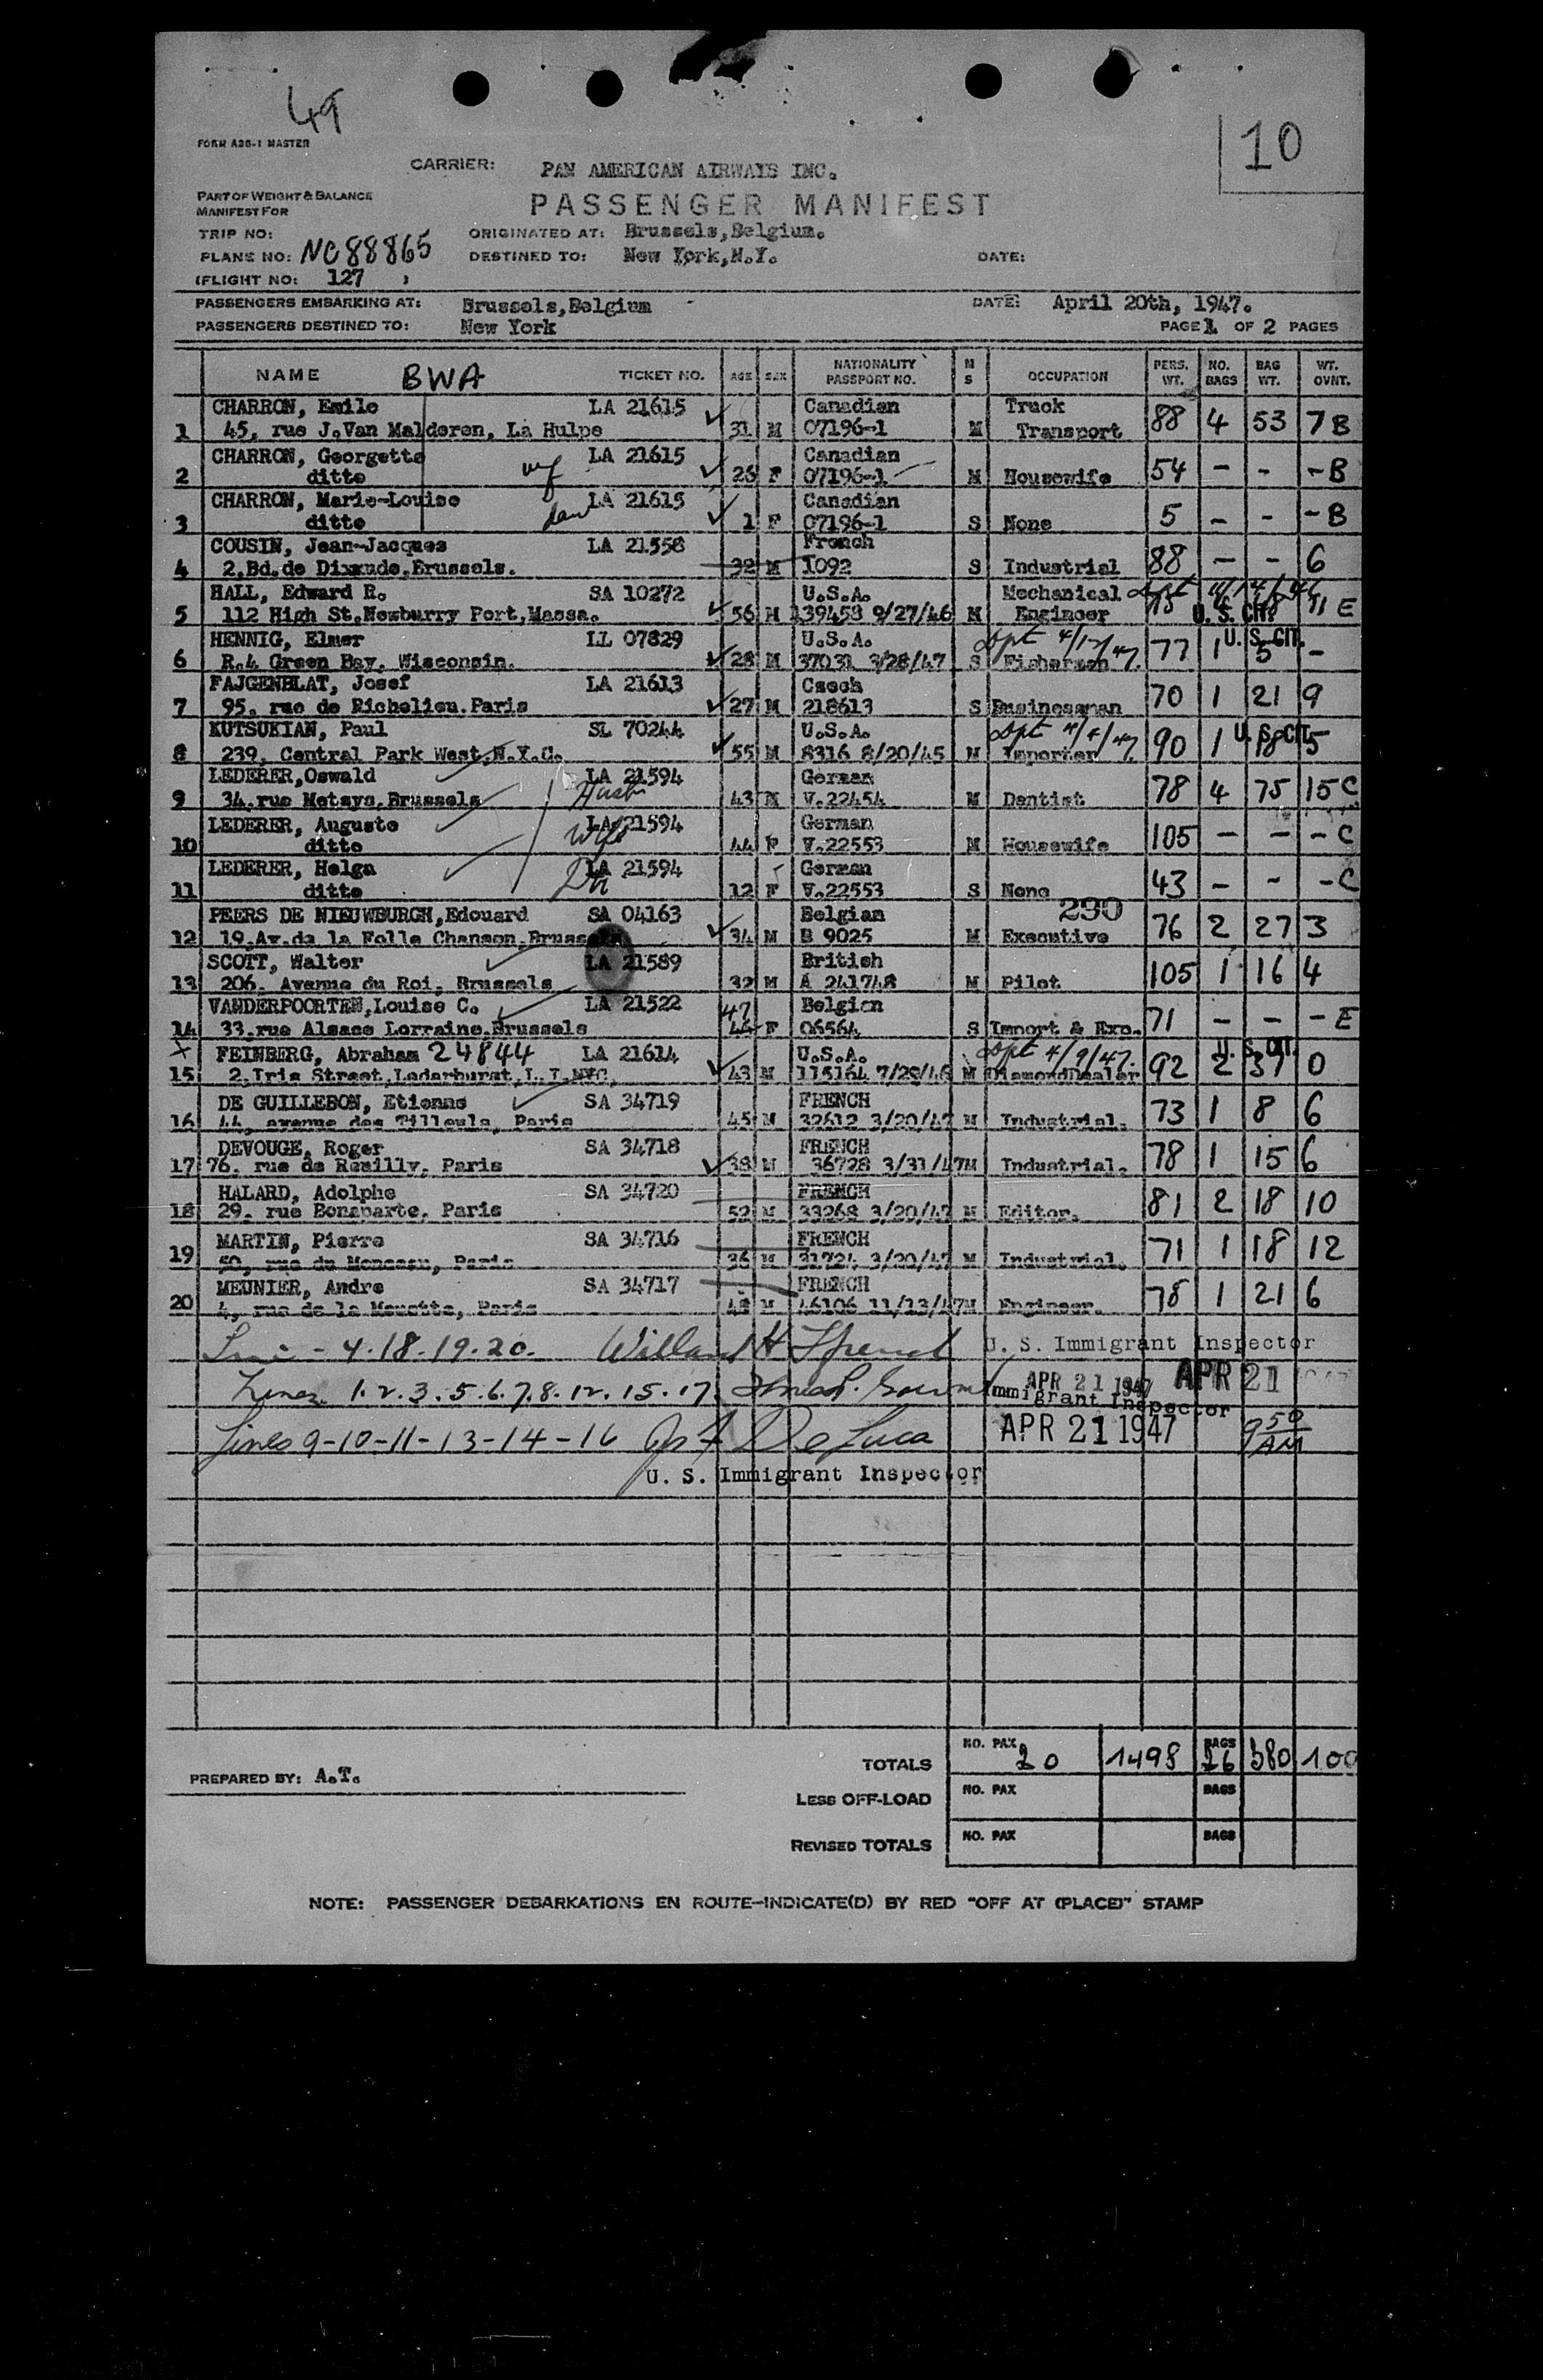 49
10
FORM A36-1 MASTER
CARRIER: PAN AMERICAN AIRWAYS INC.
PART OF WEIGHT & BALANCE
MANIFEST FOR
PASSENGER MANIFEST
TRIP NO: ORIGINATED AT: Brussels,Belgium.
PLANE NO: NC88865 DESTINED TO: New York,N.Y. DATE:
(FLIGHT NO: 127 )
PASSENGERS EMBARKING AT: Brussels,Belgium DATE: April 20th, 1947.
PASSENGERS DESTINED TO: New York PAGE 1 OF 2 PAGES
NAME BWA TICKET NO. AGE SEX NATIONALITY PASSPORT NO. M S OCCUPATION PERS. WT. NO. BAGS BAG WT. WT. OVNT.
CHARRON, Emile LA 21615 Canadian Truck
1 45, rue J.Van Malderen, La Hulpe 31 M 07196-1 M Transport 88 4 53 7 B
CHARRON, Georgette LA 21615 Canadian
2 ditto wf 26 F 07196-1 M Housewife 54 - - - B
CHARRON, Marie-Louise LA 21615 Canadian
3 ditto dau 1 F 07196-1 S None 5 - - - B
COUSIN, Jean-Jacques LA 21558 French
4 2,Bd.de Dixmude,Brussels. 32 M 1092 S Industrial 88 - - 6
HALL, Edward R. SA 10272 U.S.A. Mechanical
5 112 High St.Newburry Port,Massa. 56 M 139458 9/27/46 M Engineer U.S. CIT. 11 E
HENNIG, Elmer LL 07829 U.S.A. Dpt 4/12/47 U.S. CIT.
6 R.4 Green Bay, Wisconsin. 28 M 37031 3/28/47 S Fisherman 77 1 5 -
FAJGENBLAT, Josef LA 21613 Czech
7 95, rue de Richelieu.Paris 27 M 218613 S Businessman 70 1 21 9
KUTSUKIAN, Paul SL 70244 U.S.A. Dpt 4/4/47 U.S. CIT.
8 239, Central Park West,N.Y.C. 55 M 8316 8/20/45 M Importer 90 1 18 5
LEDERER,Oswald LA 21594 German
9 34.rue Metsys,Brussels Husb 43 M V.22454 M Dentist 78 4 75 15 C
LEDERER, Auguste LA 21594 German
10 ditto Wife 44 F V.22553 M Housewife 105 - - - C
LEDERER, Helga LA 21594 German
11 ditto Dtr 12 F V.22553 S None 43 - - - C
PEERS DE NIEUWBURGH,Edouard SA 04163 Belgian 290
12 19,Av.de la Folle Chanson,Brussels 34 M B 9025 M Executive 76 2 27 3
SCOTT, Walter LA 21589 British
13 206, Avenue du Roi, Brussels 32 M A 241748 M Pilot 105 1 16 4
VANDERPOORTEN,Louise C. LA 21522 47 Belgian
14 33,rue Alsace Lorraine.Brussels 44 F 06564 S Import & Exp. 71 - - - E
X FEINBERG, Abraham 24844 LA 21614 U.S.A. Dpt 4/9/47. U.S. CIT.
15 2,Iris Street,Ledarhurst,L.I.NYC. 43 M 115164 7/29/46 M DiamondDealer 92 2 37 0
DE GUILLEBON, Etienne SA 34719 FRENCH
16 44, avenue des Tilleuls, Paris 45 M 32612 3/20/47 M Industrial. 73 1 8 6
DEVOUGE, Roger SA 34718 FRENCH
17 76. rue de Reuilly. Paris 38 M 36728 3/31/47 M Industrial. 78 1 15 6
HALARD, Adolphe SA 34720 FRENCH
18 29. rue Bonaparte. Paris 52 M 33268 3/20/47 M Editor. 81 2 18 10
MARTIN, Pierre SA 34716 FRENCH
19 50, rue du Monceau, Paris 36 M 31724 3/20/47 M Industrial. 71 1 18 12
MEUNIER, Andre SA 34717 FRENCH
20 4, rue de la Mouette, Paris 48 M 46106 11/13/47 M Engineer. 78 1 21 6
- 4.18.19.20. Willard H U. S. Immigrant Inspector
Lines 1.2.3.5.6.7.8.12.15.17. APR 21 1947 APR 21 1947
Immigrant Inspector
Lines 9-10-11-13-14-16 Jos F De Luca APR 21 1947 9 50 AM
U. S. Immigrant Inspector
TOTALS NO. PAX 20 1498 BAGS 26 380 100
PREPARED BY: A.T.
LESS OFF-LOAD NO. PAX BAGS
REVISED TOTALS NO. PAX BAGS
NOTE: PASSENGER DEBARKATIONS EN ROUTE-INDICATE(D) BY RED "OFF AT (PLACE)" STAMP